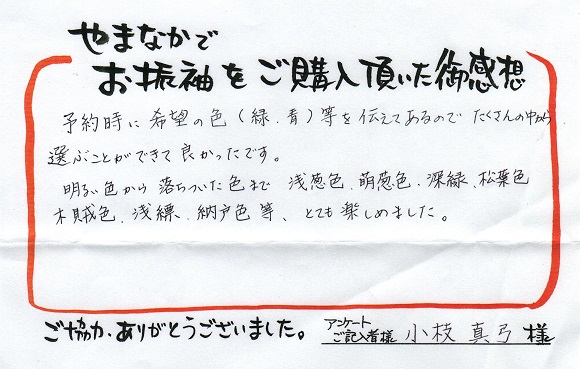 やまなかで
お振袖をご購入頂いた御感想
予約時に希望の色(緑.青)等を伝えてあるのでたくさんの中から
選ぶことができて良かったです。
明るい色から落ちついた色まで 浅葱色.萌葱色.深緑.松葉色
木賊色.浅縹.納戸色等、とても楽しめました。
ご協力、ありがとうございました。
アンケート
ご記入者様 小枝 真弓 様